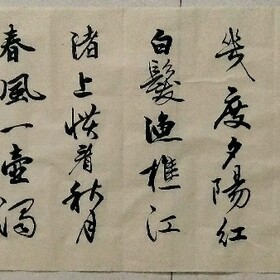 幾度夕陽紅
白髮漁樵江
渚上慣看秋月
春風一壺濁